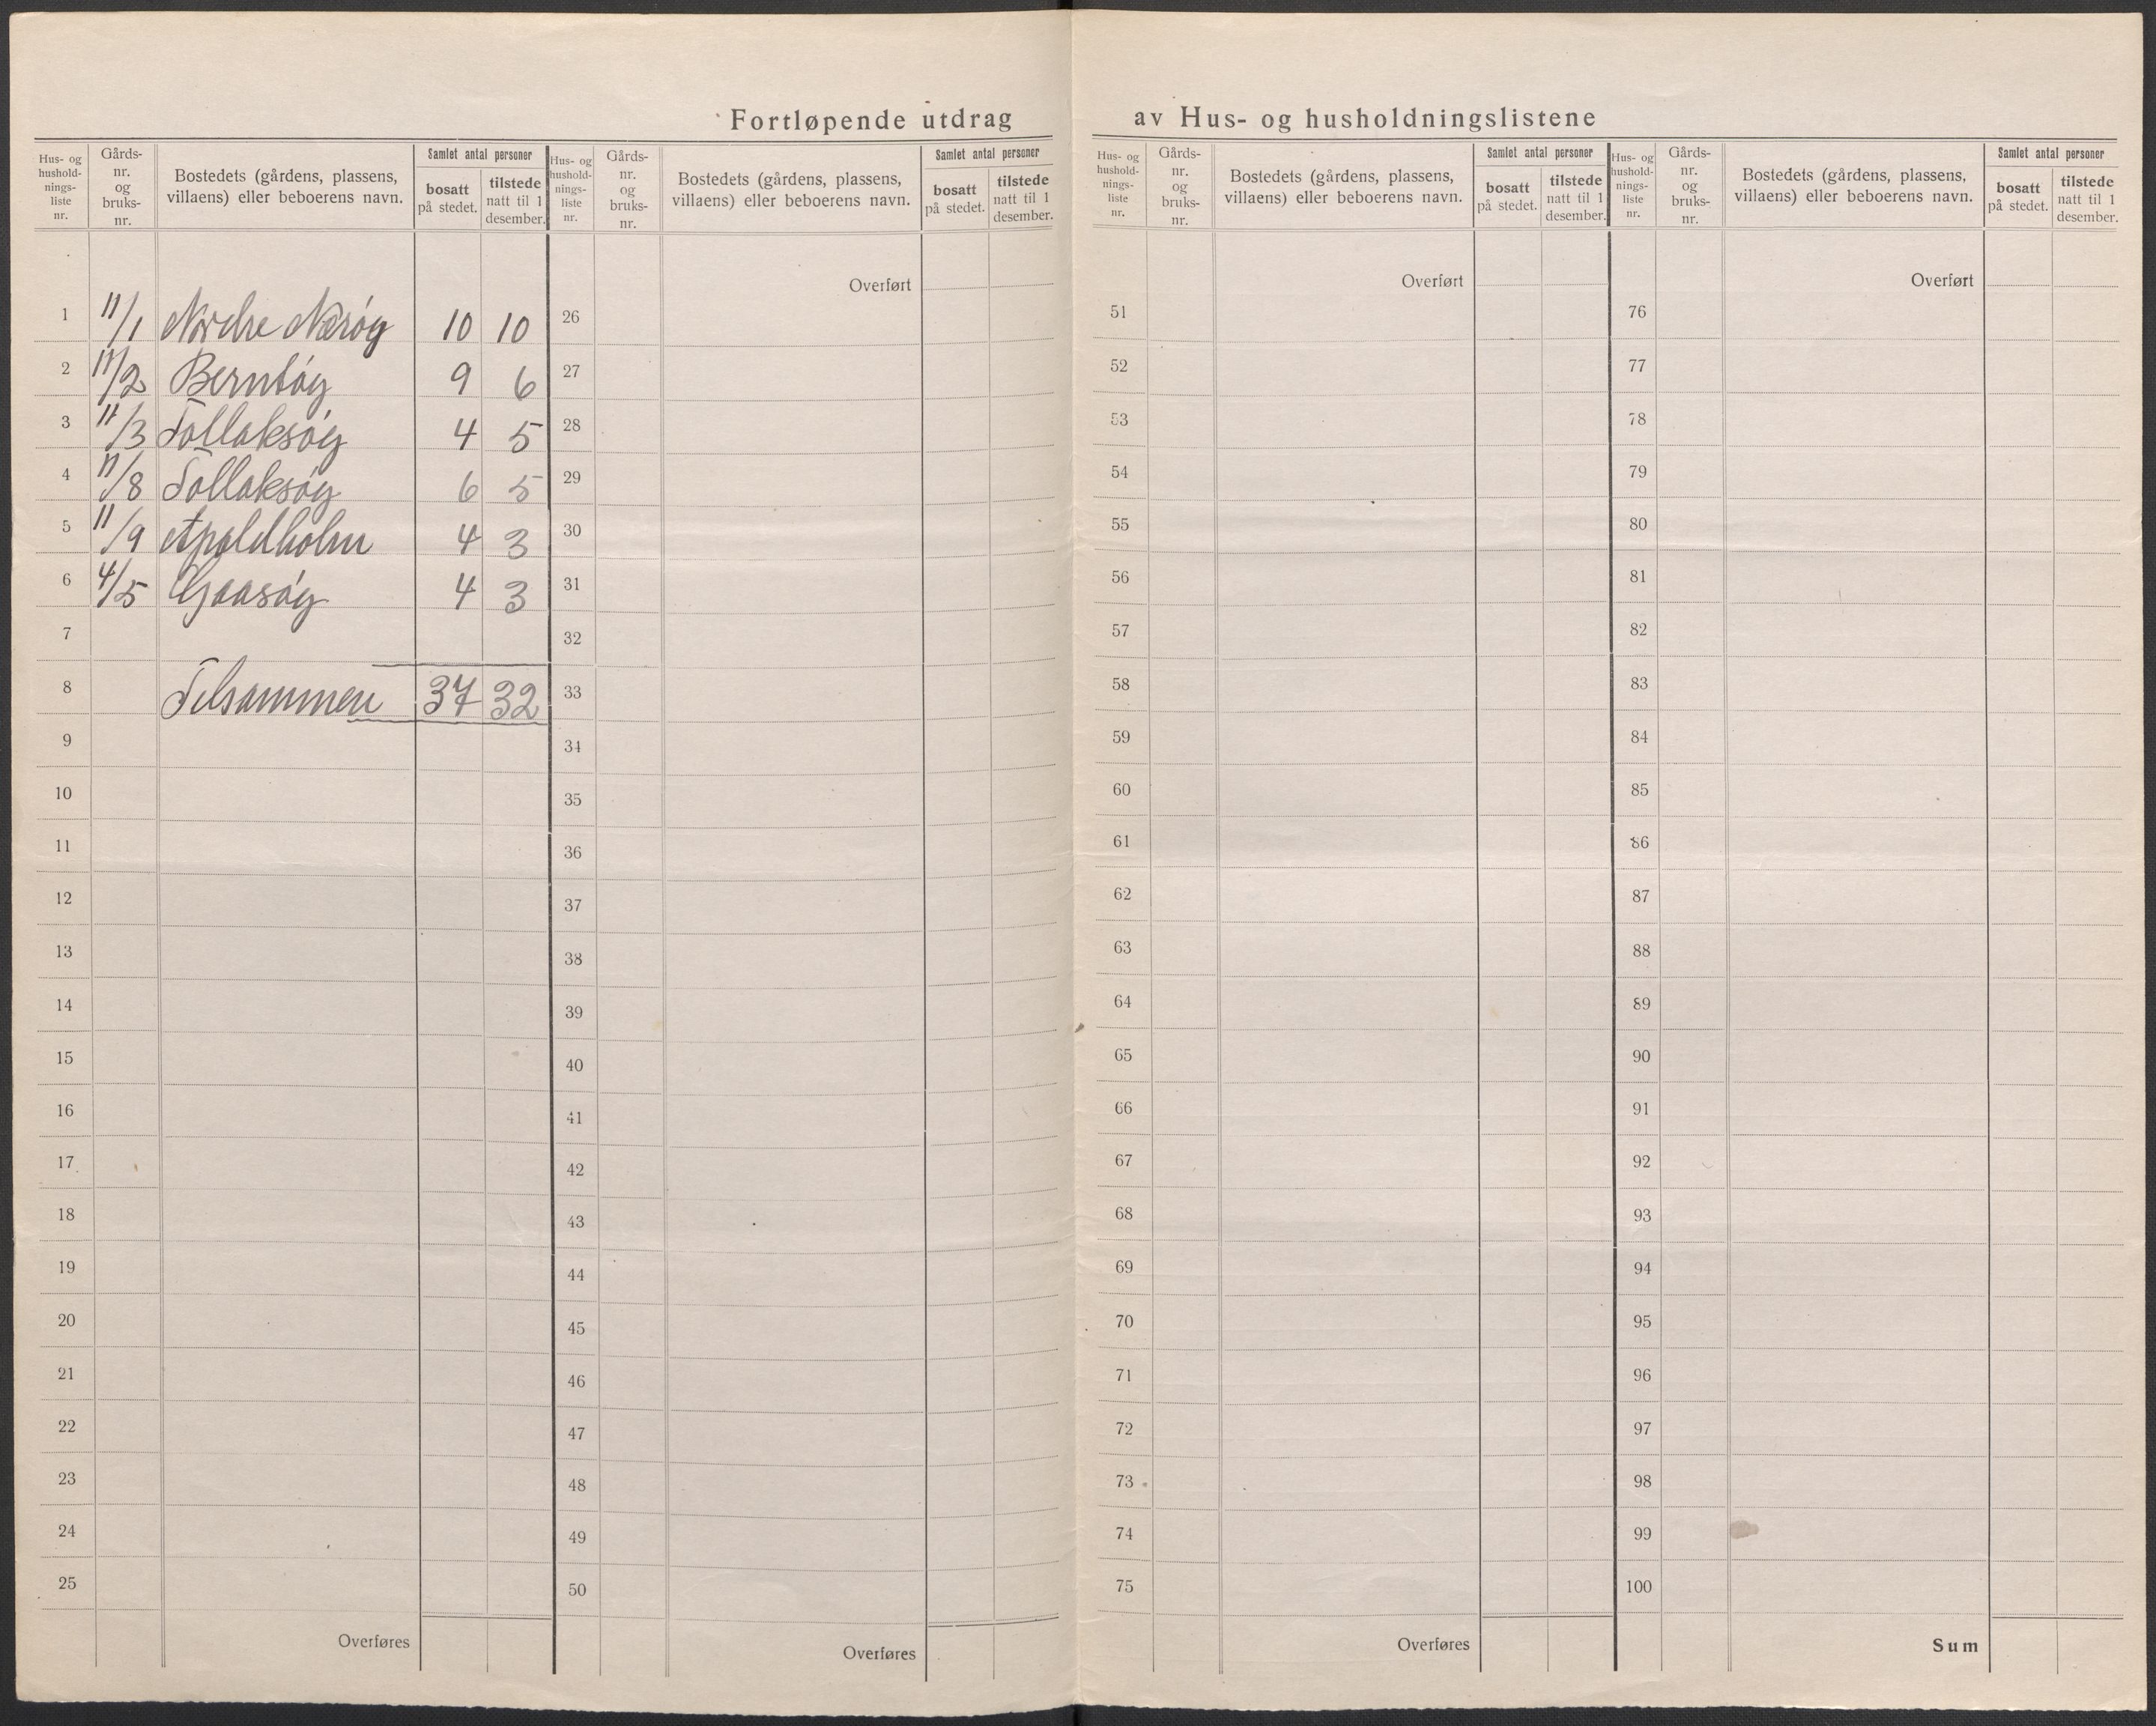 Fortløpende utdrag av Hus- og husholdningslistene
Hus- og hushold-nings-liste nr. | Gårds-nr. og bruks-nr. | Bostedets (gårdens, plassens, villaens) eller beboerens navn. | Samlet antal personer | bosatt på stedet. | tilstede natt til 1 desember.
1 | 11/1 | Nordre Nærøy | 10 | 10
2 | 11/2 | Berntøy | 9 | 6
3 | 11/3 | Tollaksøy | 4 | 5
4 | 11/8 | Tollaksøy | 6 | 5
5 | 11/9 | Apaldholm | 4 | 3
6 | 4/5 | Gaasøy | 4 | 3
7
8 | Tilsammen | 37 | 32
9
10
11
12
13
14
15
16
17
18
19
20
21
22
23
24
25
Overføres
Hus- og hushold-nings-liste nr. | Gårds-nr. og bruks-nr. | Bostedets (gårdens, plassens, villaens) eller beboerens navn. | Samlet antal personer | bosatt på stedet. | tilstede natt til 1 desember.
Overført
26
27
28
29
30
31
32
33
34
35
36
37
38
39
40
41
42
43
44
45
46
47
48
49
50
Overføres
Hus- og hushold-nings-liste nr. | Gårds-nr. og bruks-nr. | Bostedets (gårdens, plassens, villaens) eller beboerens navn. | Samlet antal personer | bosatt på stedet. | tilstede natt til 1 desember.
Overført
51
52
53
54
55
56
57
58
59
60
61
62
63
64
65
66
67
68
69
70
71
72
73
74
75
Overføres
Hus- og hushold-nings-liste nr. | Gårds-nr. og bruks-nr. | Bostedets (gårdens, plassens, villaens) eller beboerens navn. | Samlet antal personer | bosatt på stedet. | tilstede natt til 1 desember.
Overført
76
77
78
79
80
81
82
83
84
85
86
87
88
89
90
91
92
93
94
95
96
97
98
99
100
Sum